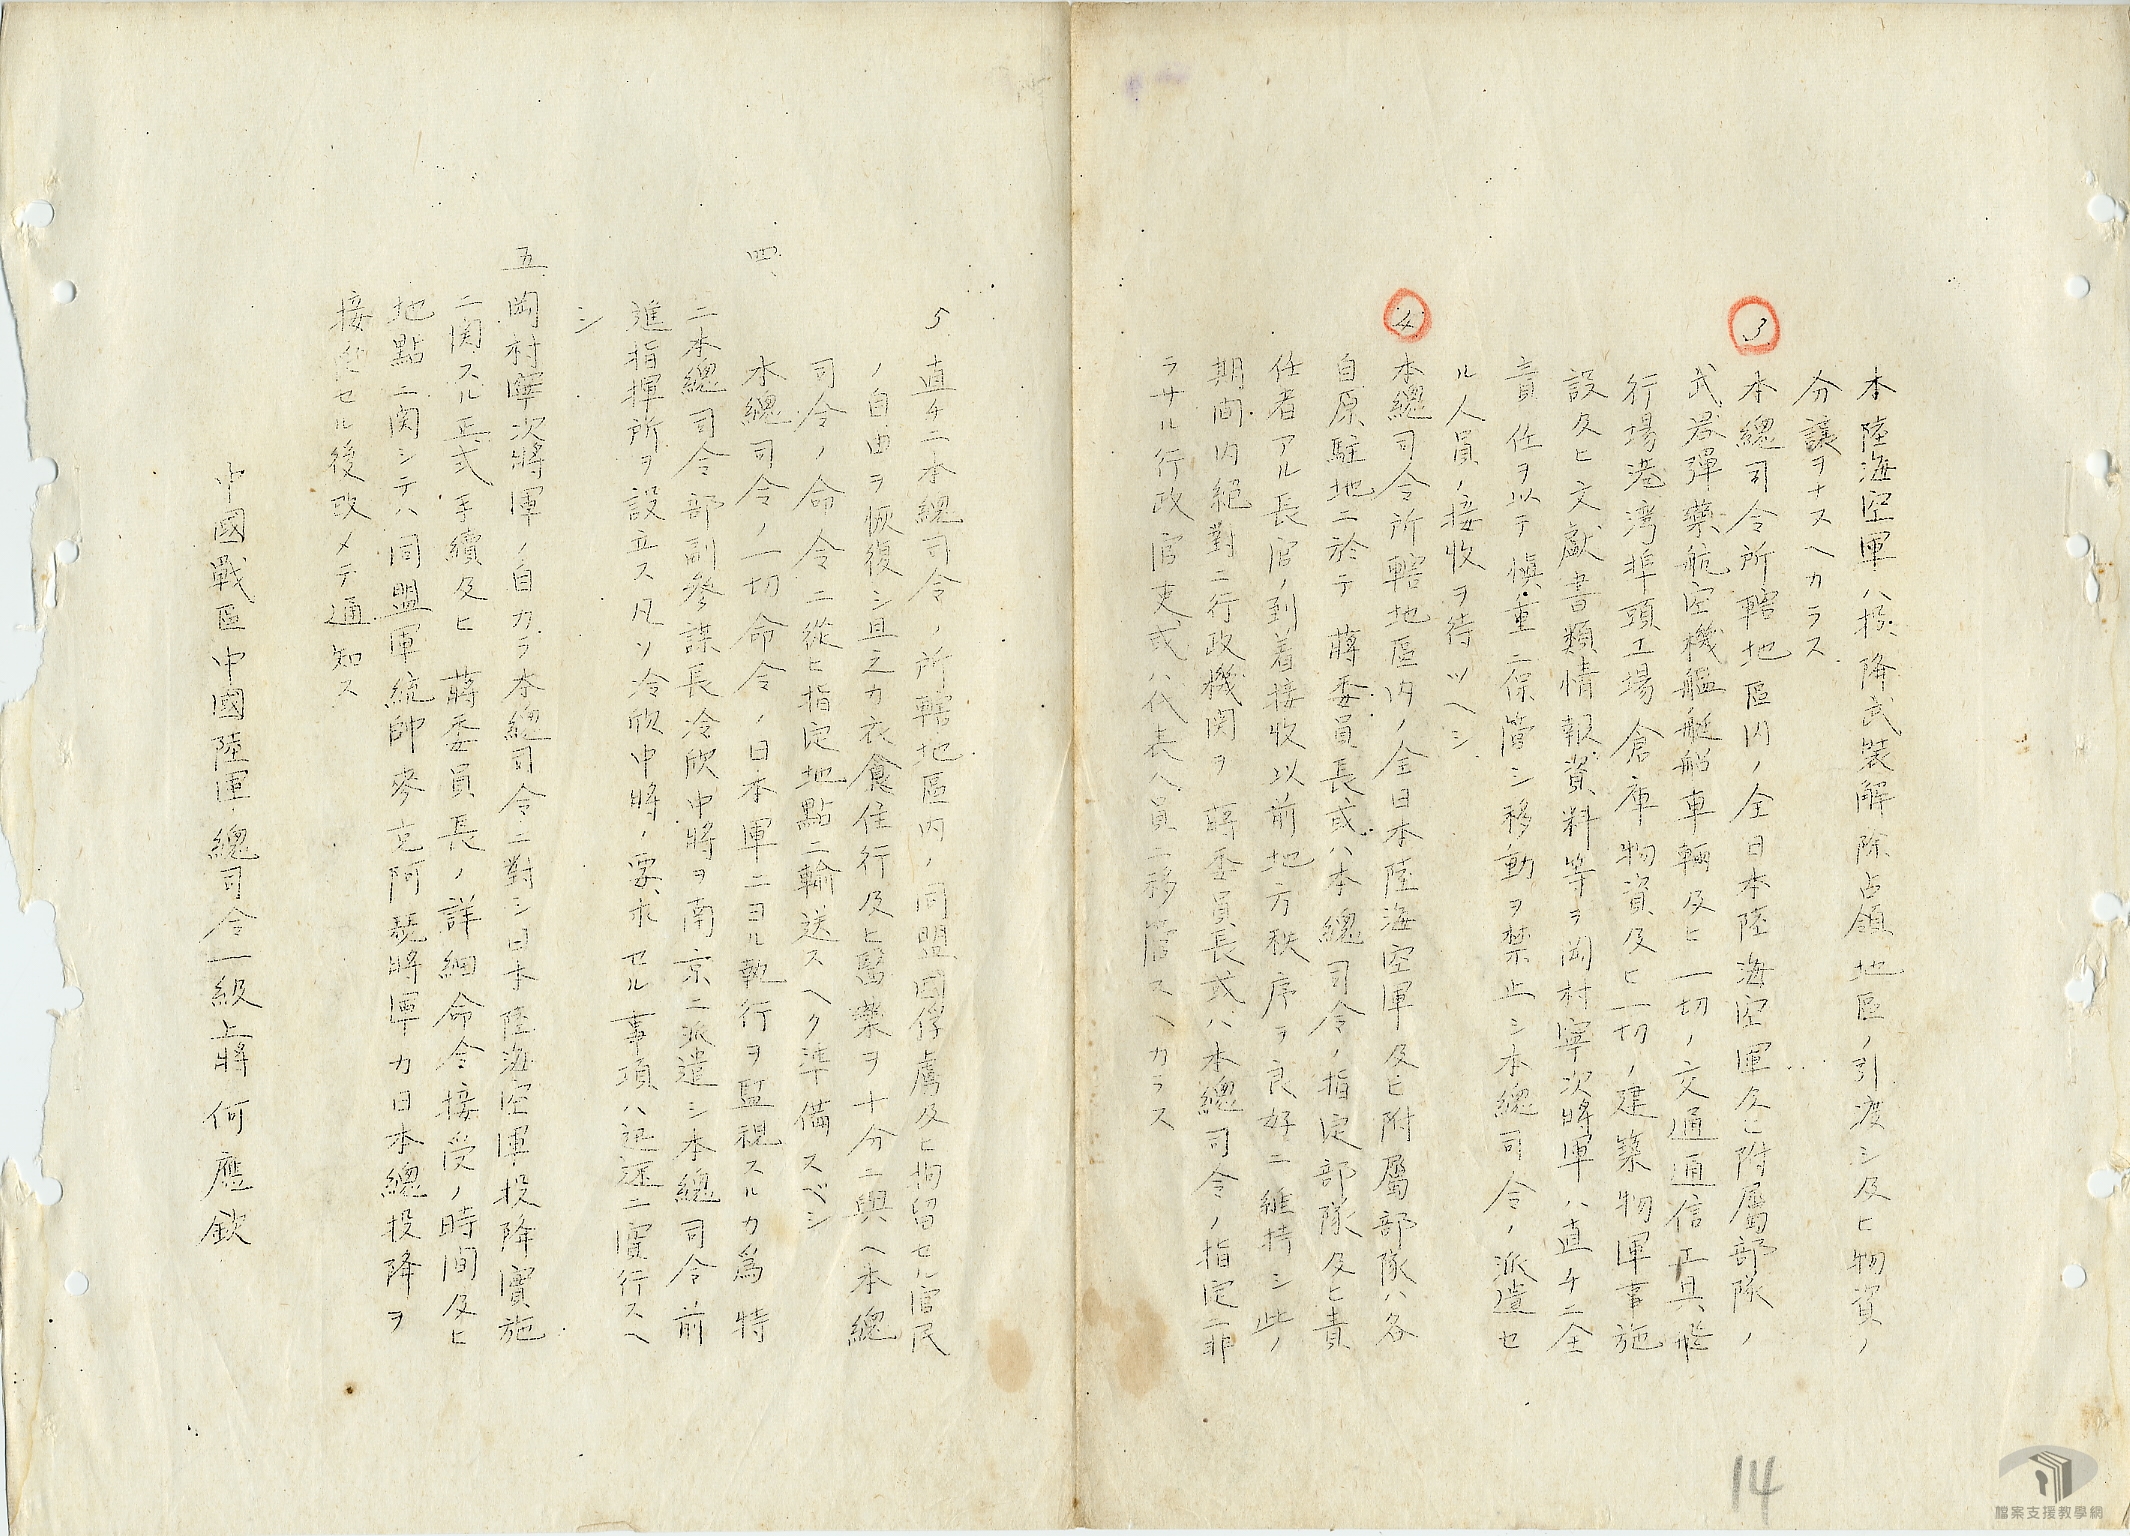 本陸海空軍ハ投降武装解除占領地區ノ引渡シ及ヒ物資ノ
分讓ヲナスヘカラス
3 本總司令所轄地區内ノ全日本陸海空軍及ヒ附屬部隊ノ
武器彈藥航空機艦艇船車輌及ヒ一切ノ交通通信工具飛
行場港湾埠頭工場倉庫物資及ヒ一切ノ建築物軍事施
設及ヒ文献書類情報資料等ヲ岡村寧次將軍ハ直チニ全
責任ヲ以テ慎重ニ保管シ移動ヲ禁止シ本總司令ノ派遣セ
ル人員ノ接收ヲ待ツヘシ
4 本總司令所轄地區内ノ全日本陸海空軍及ヒ附屬部隊ハ各
自原駐地ニ於テ蔣委員長或ハ本總司令ノ指定部隊及ヒ責
任者アル長官ノ到着接收以前地方秩序ヲ良好ニ維持シ此ノ
期間内絕對ニ行政機関ヲ蔣委員長或ハ本總司令ノ指定ニ非
ラサル行政官吏或ハ代表人員ニ移管スヘカラス
5 直チニ本總司令ノ所轄地區内ノ同盟國俘虜及ヒ拘留セル官民
ノ自由ヲ恢復シ且之カ衣食住行及ヒ醫藥ヲ十分ニ與ヘ本總
司令ノ命令ニ從ヒ指定地點ニ輸送スヘク準備スベシ
四、 本總司令ノ一切命令ノ日本軍ニヨル執行ヲ監視スルカ爲特
ニ本總司令部副參謀長冷欣中將ヲ南京ニ派遣シ本總司令前
進指揮所ヲ設立ス凡ソ冷欣中將ノ要求セル事項ハ迅速ニ實行スヘ
シ
五 岡村寧次將軍ノ自カラ本總司令ニ對シ日本陸海空軍投降實施
ニ関スル正式手續及ヒ蔣委員長ノ詳細命令接受ノ時間及ヒ
地點ニ関シテハ同盟軍統帥麥克阿瑟將軍カ日本總投降ヲ
接受セル後改メテ通知ス
中國戰區中國陸軍總司令一級上將何應欽
14
檔案支援教學網